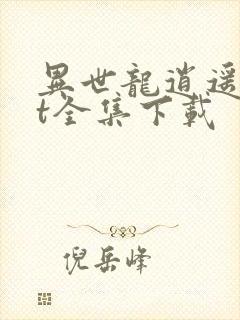 異世龍逍遥
t全集下載
倪岳峰